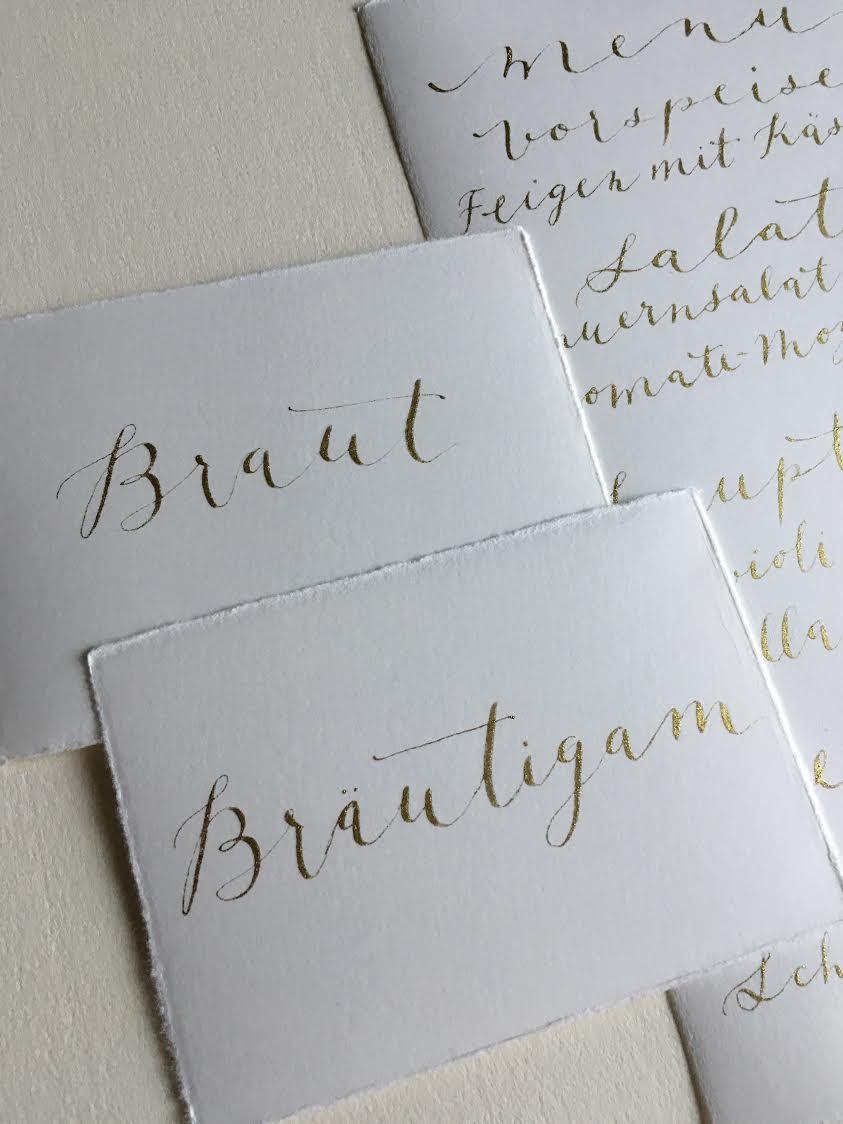 menu
vorspeise
Feigen mit Käs
Salat
uernsalat
omate-Moz
upt
ioli
lla
e
Sch
Braut
Bräutigam